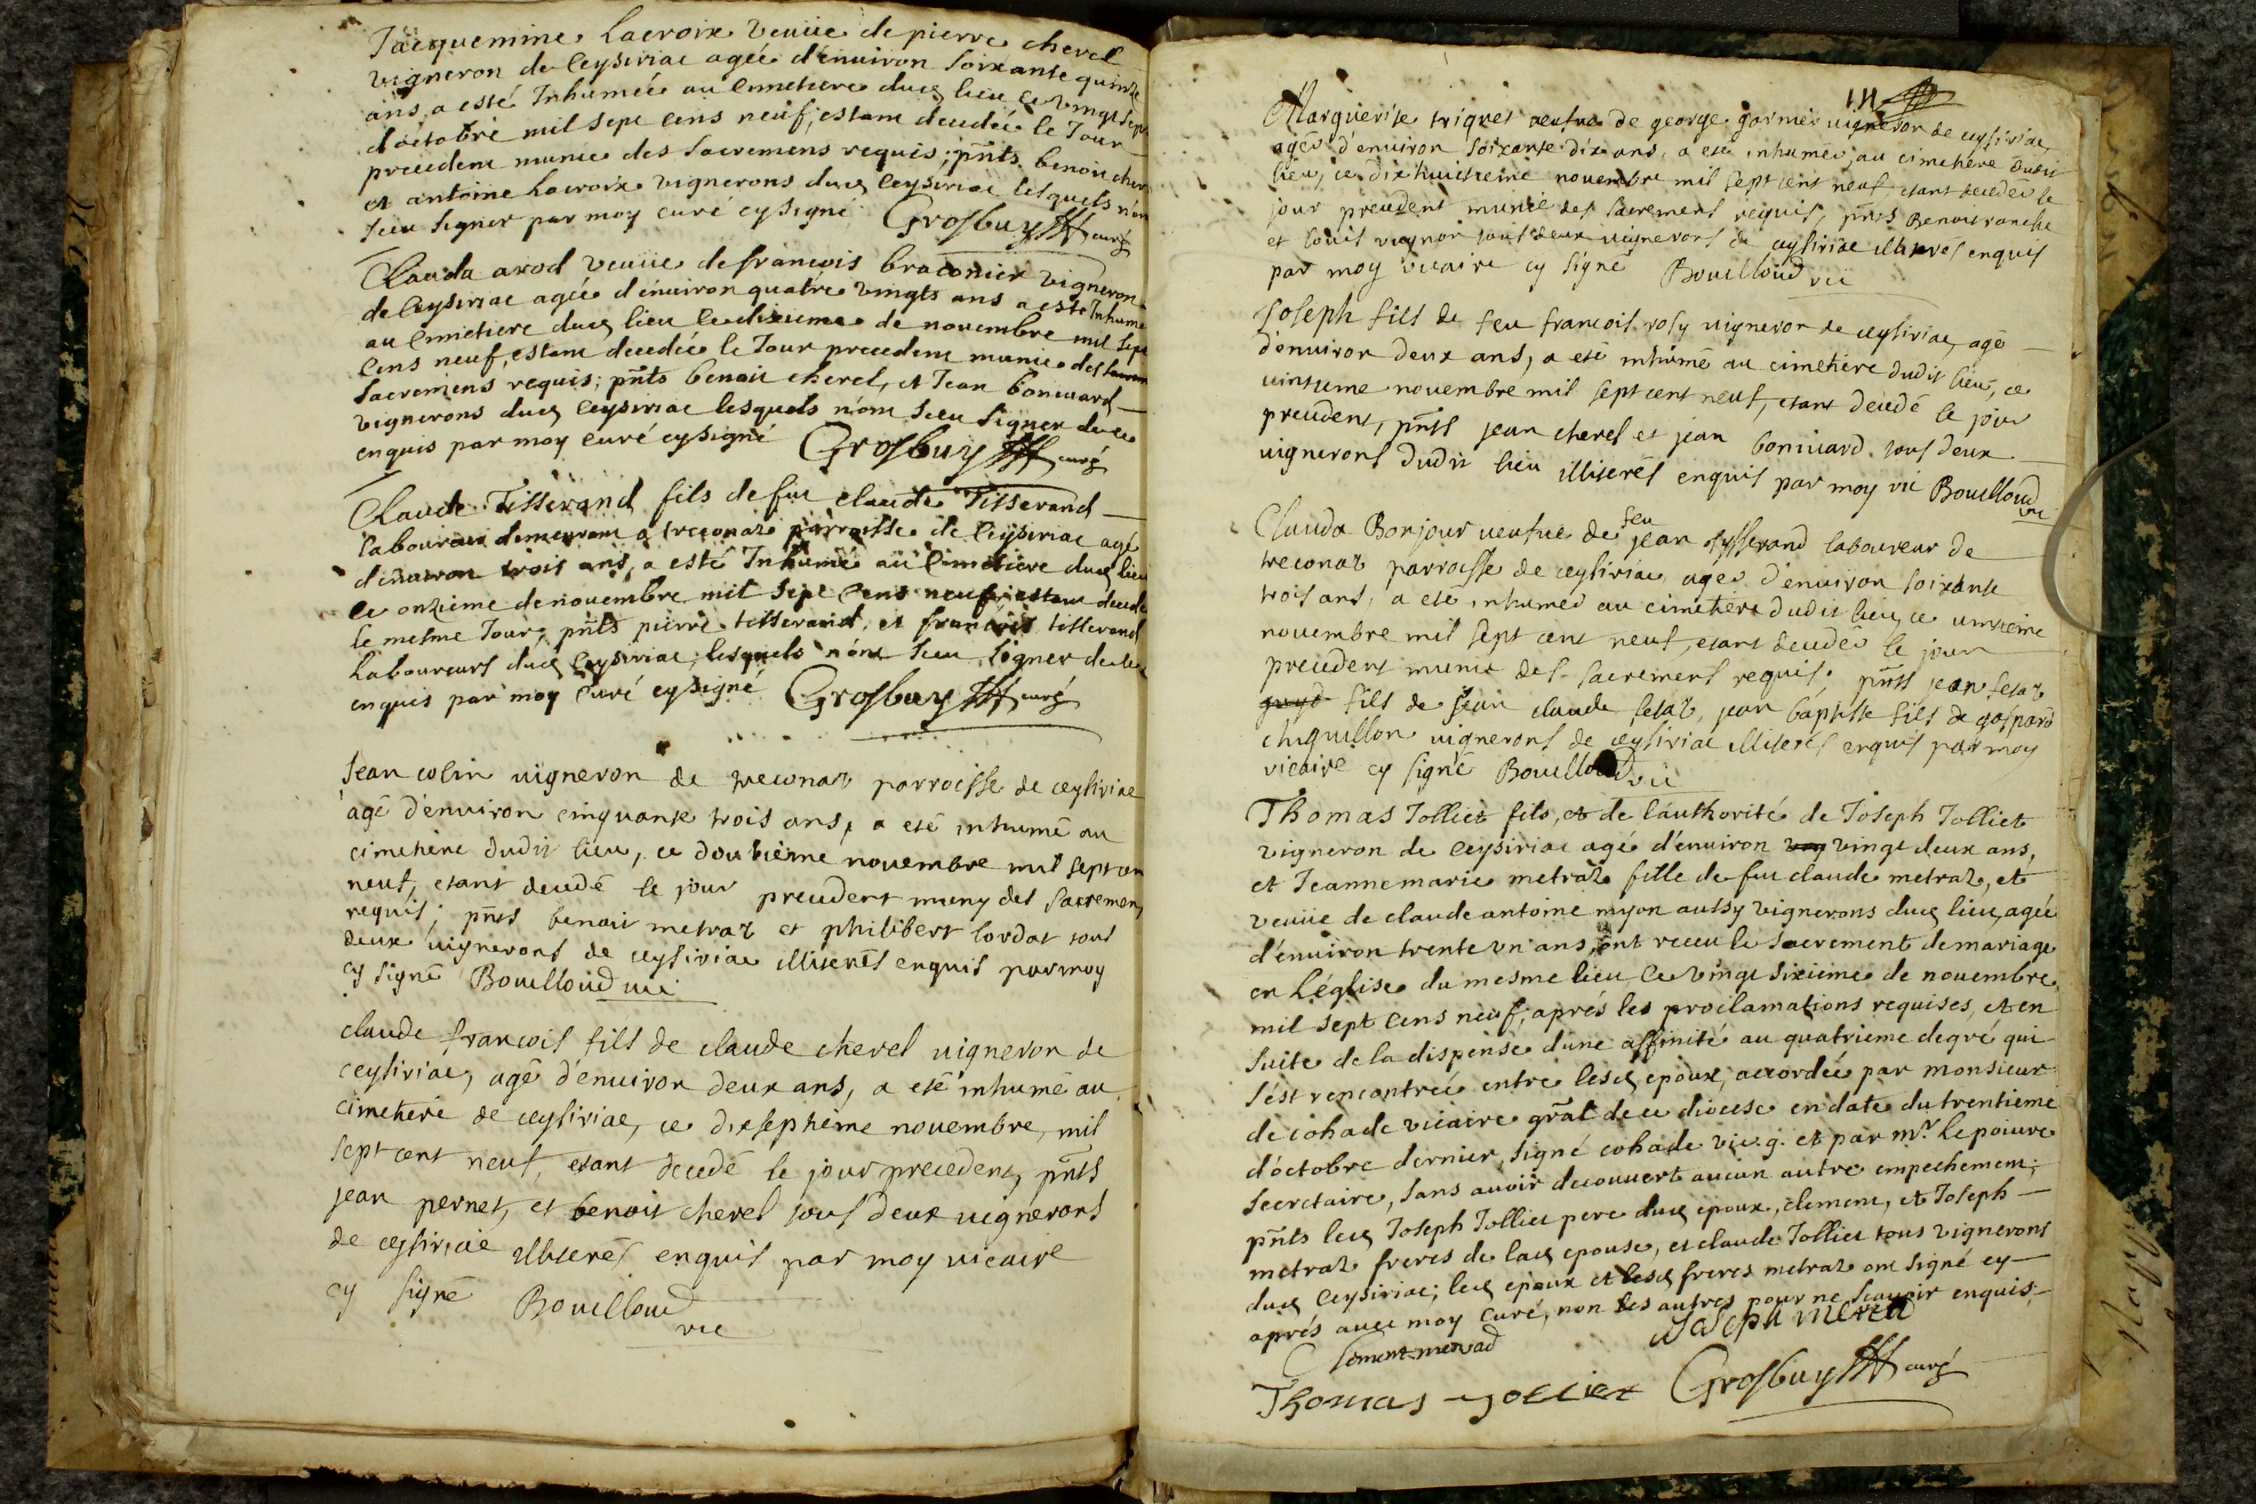 Jacquemine Lacroix veuüe de pierre cherel
vigneron de Ceysiriac agée d'enuiron soixante quinze
ans, a esté Inhumée au Cimetiere dud lieu Ce vingt sept
d'octobre mil sept cens neuf, estant decedée le Jour
precedent munie des sacremens requis; pnts benoit cher
et antoine Lacroix vignerons dud Ceysiriac lesquels n'on
sceu signer par moy curé cy signé Grosbuy curé
Clauda arod veuüe de francois braconier vigneron
de Ceysiriac agée d'enuiron quatre vingts ans a esté Inhumé
au Cimetiere dud lieu Ce dixieme de nouembre mil sept
Cens neuf, estant decedée le Jour precedent munie des
sacremens requis; pnts benoit cherel, et Jean boniuard
vignerons dud Ceysiriac lesquels n'ont sceu signer de ce
enquis par moy Curé cy signé Grosbuy curé
Claude Tisserand fils de fut claude Tisserand
laboureur demeurant a treconaz parroisse de Ceysiriac agé
d'enuiron trois ans, a esté Inhumé au Cimetiere dud lieu
Ce onzieme de nouembre mil sept Cens neuf, estant decedé
le mesme Jour, pnts pierre tisserand, et francois tisserand
Laboureurs dud Ceysiriac, lesquels n'ont sceu signer de ce
enquis par moy Curé cy signé Grosbuy curé
Jean colin uigneron de treconaz parroisse de ceysiriac
agé d'enuiron cinquante trois ans, a eté inhumé au
cimetiere dudit lieu, ce douzieme nouembre mil sept cen
neuf, etant decedé le jour precedent muny des sacremen
requis; pnts benoit metraz et philibert lordat tous
deux uignerons de ceysiriac illiterés enquis par moy
cy signé Bouilloud vic
claude francois fils de claude cherel uigneron de
ceysiriac, agé d'enuiron deux ans, a eté inhumé au
cimetiere de ceysiriac, ce dixseptieme nouembre, mil
sept cent neuf, etant decedé le jour precedent, pnts
jean pernet, et benoit cherel tous deux uignerons
de ceysiriac illiterés enquis par moy uicaire
cy signé Bouilloud
vic
Marguerite triquet ueufue de george garnier uigneron de ceysiriac
agée d'enuiron soixante dix ans, a eté inhumée au cimetiere dudit
lieu, ce dixhuictieme nouembre mil sept cent neuf, etant decedée le
jour precedent munie des sacrement requis, pnts Benoit
et louis tous deux uignerons de ceysiriac illiterés enquis
par moy uicaire cy signé Bouilloud vic
Joseph fils de feu francois rosy uigneron de ceysiriac, agé
d'enuiron deux ans, a eté inhumé au cimetiere dudit lieu, ce
uintieme nouembre mil sept cent neuf, etant decedé le jour
precedent, pnts jean cherel et jean boniuard tous deux
uignerons dudit lieu illiterés enquis par moy vic Bouilloud
vic
Clauda Bonjour ueufue de feu jean tysserand laboureur de
treconaz parroisse de ceysiriac agée d'enuiron soixante
trois ans, a eté inhumée au cimetiere dudit lieu, ce
nouembre mil sept cent neuf, etant decedée le jour
precedent munie des sacrement requis. pnts jean
fils de jean claude jean baptiste fils de gaspard
chiquillon uignerons de ceysiriac illiterés enquis par moy
vicaire cy signé Bouilloud vic
Thomas Jolliet fils, et de l'authorité de Joseph Jolliet
vigneron de Ceysiriac agé d'enuiron vingt deux ans,
et Jeanne marie metraz fille de fut claude metraz, et
veuüe de claude antoine myon aussy vignerons dud lieu, agée
d'enuiron trente vn ans, ont receu le sacrement de mariage
en l'église du mesme lieu Ce vingt sixieme de nouembre
mil sept Cens neuf, aprés les proclamations requises, et en
suite de la dispense d'une affinité au quatrieme degré qui
s'est rencontrée entre lesd epoux, accordée par monsieur
de cohade vicaire gral de ce diocese en date du trentieme
d'octobre dernier, signé cohade vic. g. et par mr. Lepoiure
secretaire, sans auoir decouuert aucun autre empechement;
pnts led Joseph Jolliet pere dud epoux, clement, et Joseph
metraz freres de lad epouse, et claude Jolliet tous vignerons
dud Ceysiriac; led epoux et lesd freres metraz ont signé cy
aprés auec moy Curé, non les autres pour ne scauoir enquis
Joseph metra
Clement metrad
Thomas jolliet Grosbuy curé